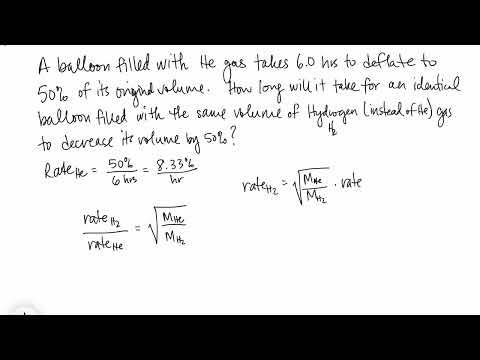 A balloon filled with He gas takes 6.0 hrs to deflate to
50% of its original volume. How long will it take for an identical
balloon filled with the same volume of Hydrogen (instead of He) gas
H₂
to decrease its volume by 50%?
Rate He = 50% / 6 hrs = 8.33% / hr
rate H₂ = √(M He / M H₂) · rate
rate H₂ / rate He = √(M He / M H₂)